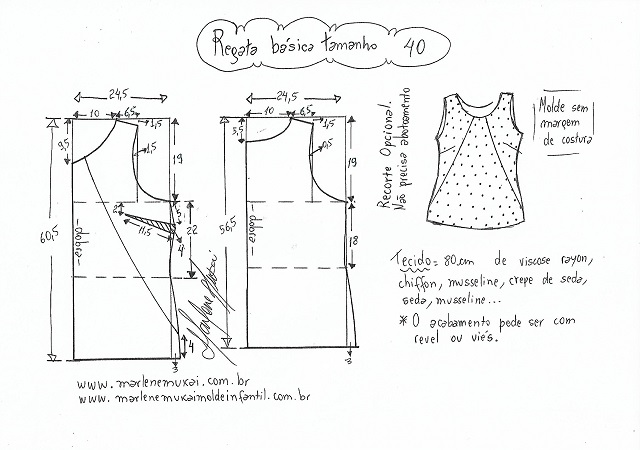 Regata básica tamanho 40
24,5
10 6,5
1,5
9,5
1,5
19
60,5
2
5
11,5
4
22
-dobra-
4
3
24,5
10 6,5
1,5
5,5
0,5
19
56,5
-dobra-
18
3
Recorte Opcional.
Não precisa acabamento
Molde sem
margem
de costura
Tecido = 80cm de viscose rayon,
chiffon, musseline, crepe de seda,
seda, musseline...
* O acabamento pode ser com
revel ou viés.
Marlene Mukai
www.marlenemukai.com.br
www.marlenemukaimoldeinfantil.com.br